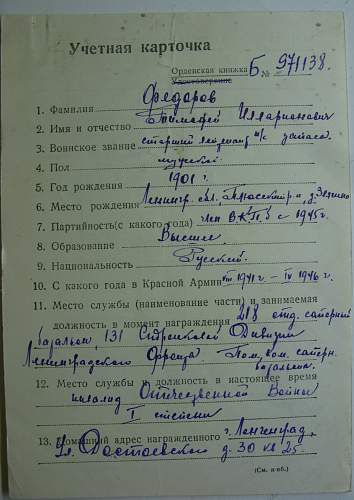 Учетная карточка
Орденская книжка Б № 971138.
Удостоверение
1. Фамилия Федоров
2. Имя и отчество Тимофей Илларионович
3. Воинское звание старший лейтенант и/с запаса
4. Пол мужской
5. Год рождения 1901 г.
6. Место рождения Ленингр. обл.
7. Партийность (с какого года) член ВКПб с 1945г.
8. Образование Высшее
9. Национальность Русский.
10. С какого года в Красной Армии VIII 1941 г – IV 1946 г.
11. Место службы (наименование части) и занимаемая
должность в момент награждения 218 отд. саперный
батальон 131 Стрелковой Дивизии
Ленинградского Фронта Пом. ком. саперн.
батальона.
12. Место службы и должность в настоящее время
инвалид Отечественной Войны
I степени
13. Домашний адрес награжденного г. Ленинград,
ул. Достоевского д. 30 кв 25.
(См. н-об.)